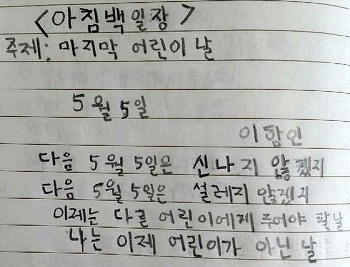 <아침백일장>
주제: 마지막 어린이 날
5월 5일
이함인
다음 5월 5일은 신나지 않겠지
다음 5월 5일은 설레지 않겠지
이제는 다른 어린이에게 주어야 할 날
나는 이제 어린이가 아닌 날